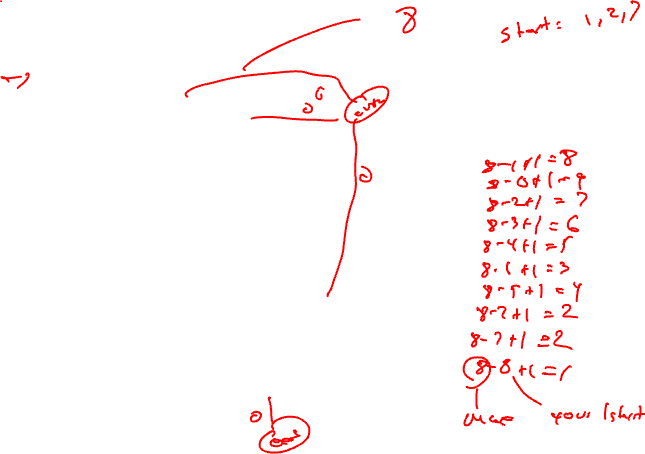 8
start: 1, 2, 7
8-1+1=8
8-0+1=9
8-2+1=7
8-3+1=6
8-4+1=5
8-6+1=3
8-5+1=4
8-7+1=2
8-7+1=2
8-8+1=1
your start